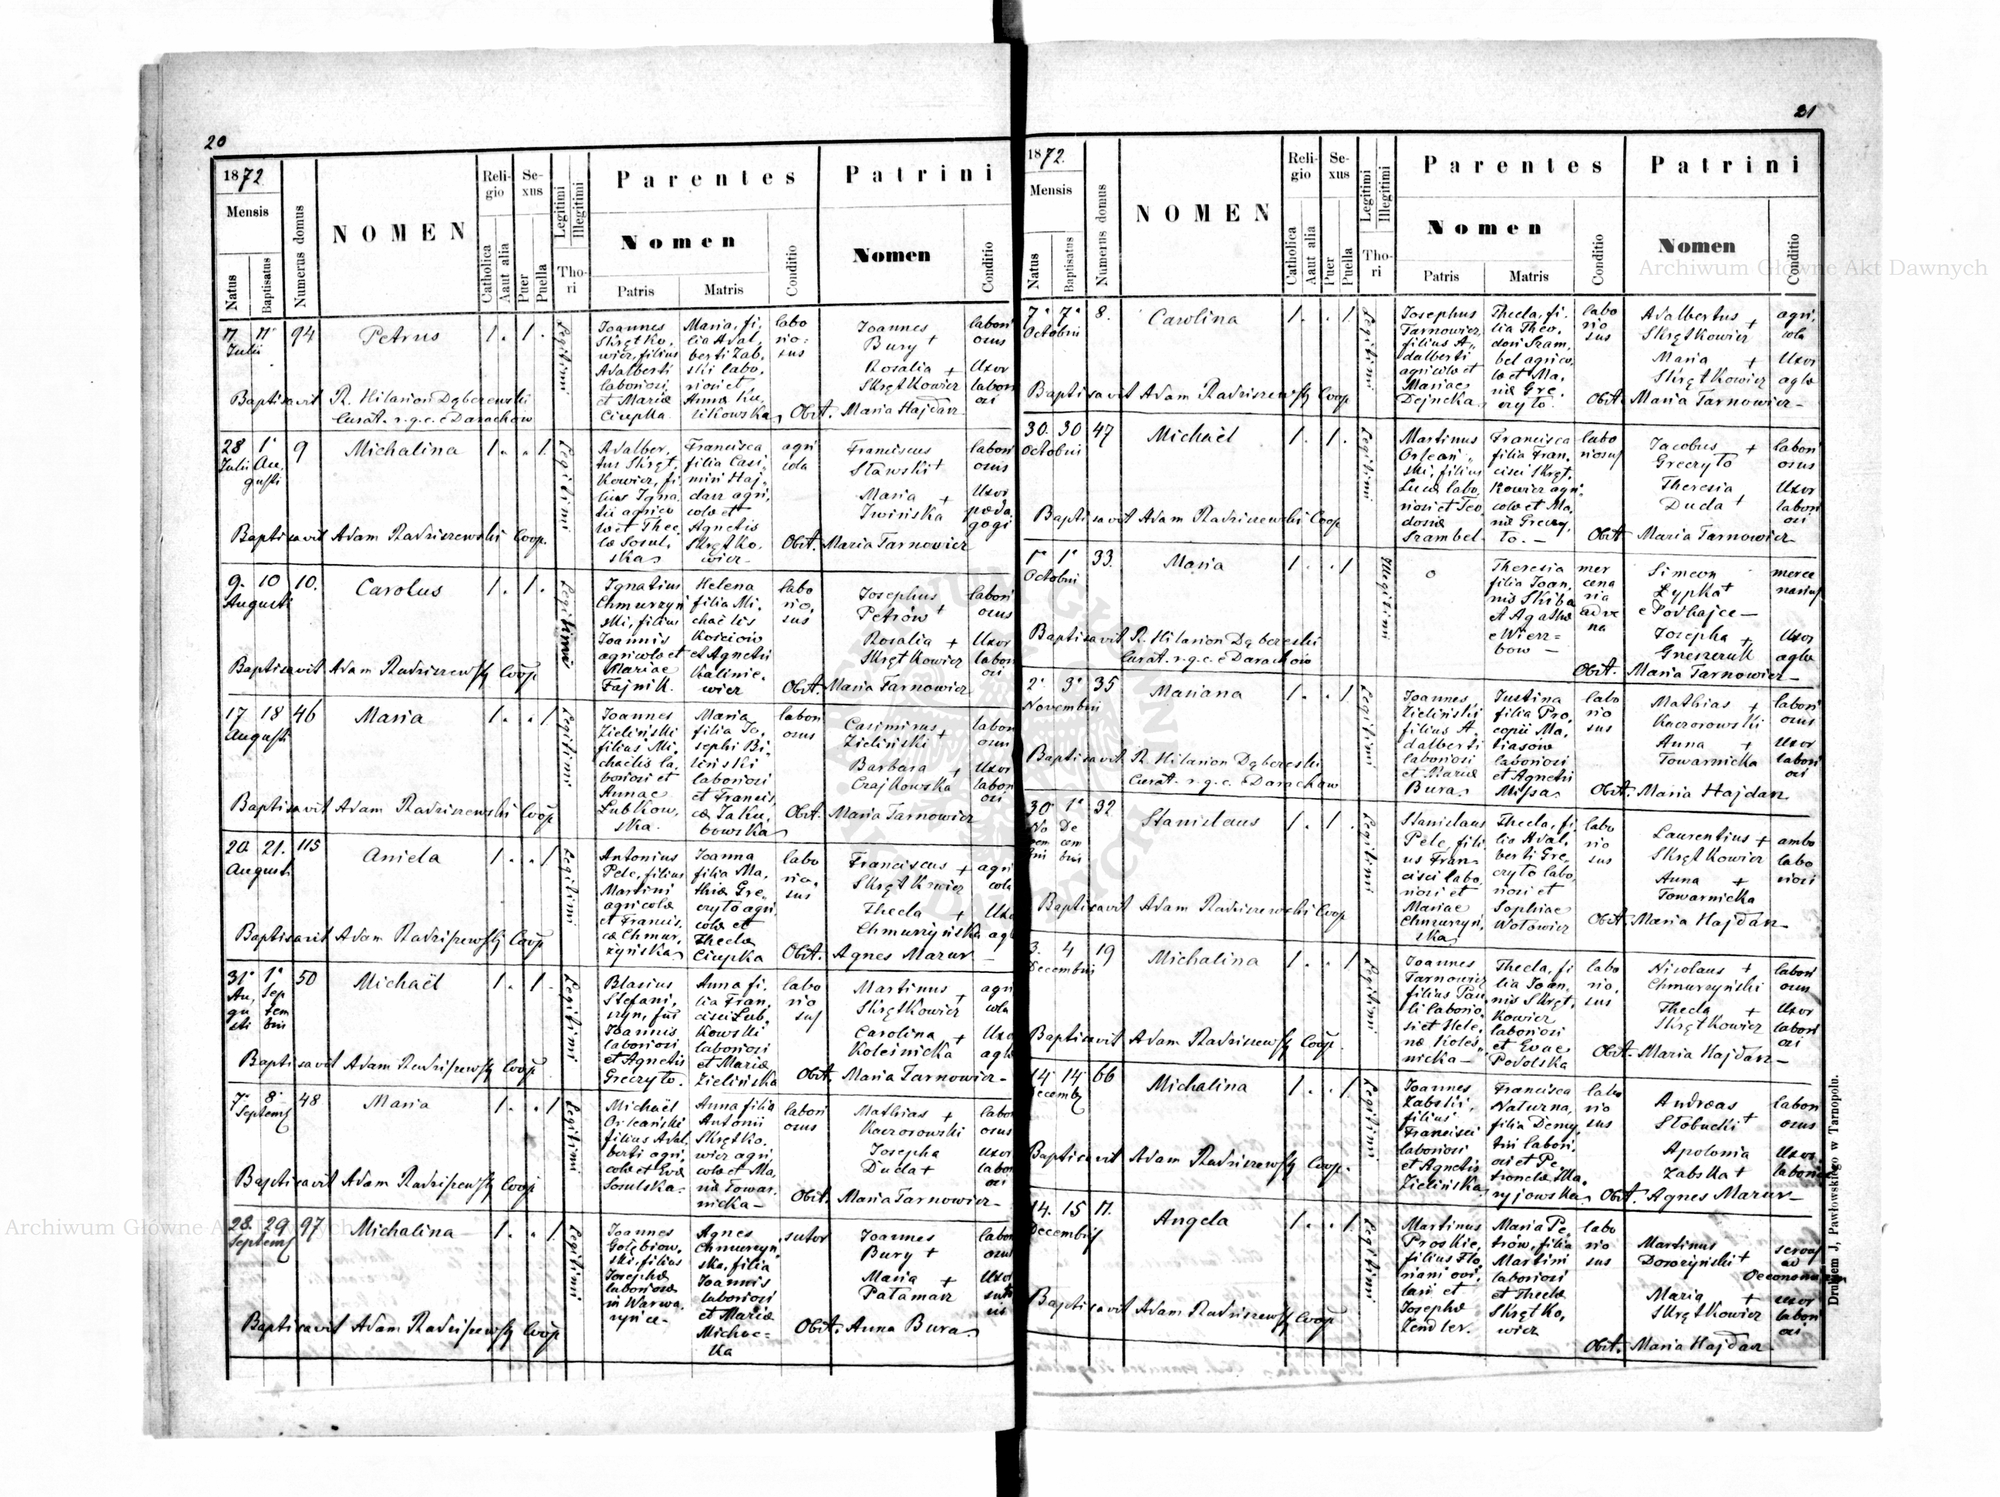 20
1872
Mensis
Natus
Baptisatus
Numerus domus
NOMEN
Religio
Catholica
Aaut alia
Sexus
Puer
Puella
Legitimi
Illegitimi
Thori
Parentes
Nomen
Patris
Matris
Conditio
Patrini
Nomen
Conditio
Julii
94
Petrus
1.
1.
Legitimi
Joannes
Skrętko,
wicz, filius
Adalberti
laboriosi
et Mariæ
Ciupka
Maria, fi,
lia Adal,
berti Zab,
ski labo,
riosi et
Annæ Ku,
likowska
labo
rio:
sus
Joannes
Bury +
Rosalia +
Skrętkowicz
labori
osus
Uxor
labori
osi
Baptisavit R. Hilarion Dąberewski
Curat. r. g. c. e Darachow
Obst. Maria Hajdarz
28 1
Julii Au,
gusti
9
Michalina
1.
.
1.
Legitimi
Adalber,
tus Skręt,
kowicz, fi,
lius Igna
tii agrico
læ et Thec
læ Sosul,
ska
Francisca
filia Casi,
miri Haj,
darz agri,
colæ et
Agnetis
Skrętko,
wicz
agri
cola
Franciscus
Stawski +
Maria +
Iwińska
labori
osus
Uxor
pæda
gogi
Baptisavit Adam Radziszewski Coop.
Obst. Maria Tarnowicz
9. 10
Augusti
10.
Carolus
1.
1.
Legitimi
Ignatius
Chmurzyń
ski, filius
Joannis
agricolæ et
Mariae
Fajnik.
Helena
filia Mi,
chaëlis
Kościów
et Agnetis
Kalinie,
wicz
labo
rio,
sus
Josephus
Petrów +
Rosalia +
Skrętkowicz
labori
osus
Uxor
labori
osi
Baptisavit Adam Radziszewski Coop
Obst. Maria Tarnowicz
17 18
Augusti
46
Maria
1.
.
1
Legitimi
Joannes
Zieliński
filius Mi,
chaëlis la,
boriosi et
Annae
Lubkow,
ska.
Maria
filia Jo,
sephi Bi,
liński
laboriosi
et Francis,
cæ Jaku,
bowska
labori
osus
Casimirus +
Zieliński
Barbara +
Czajkowska
labori
osus
Uxor
labori
osi
Baptisavit Adam Radziszewski Coop
Obst. Maria Tarnowicz
20. 21.
Augusti
115
Aniela
1.
.
1
Legitimi
Antonius
Pelc, filius
Martini
agricolæ
et Francis,
cæ Chmur,
zyńska
Joanna
filia Ma,
thiæ Gre,
czyto agri,
colæ et
Theclæ
Ciupka
labo
rio,
sus
Franciscus +
Skrętkowicz
Thecla +
Chmurzyńska
agri
cola
Baptisavit Adam Radziszewski Coop
Obst. Agnes Mazur
31 1
Au, Sep
gu tem
sti bris
50
Michaël
1.
1.
Legitimi
Blasius
Stefani,
szyn, filius
Joannis
laboriosi
et Agnetis
Greczyto.
Anna fi,
lia Fran,
cisci Lub,
kowski
laboriosi
et Mariæ
Zielińska
labo
rio
sus
Martinus +
Skrętkowicz
Carolina +
Kolesnicka
agri
cola
Baptisavit Adam Radziszewski Coop
Obst. Maria Tarnowicz
7. 8.
Septemb
48
Maria
1.
.
1
Legitimi
Michaël
Orleański
filius Adal,
berti agri,
colæ et Evæ
Sosulska.
Anna filia
Antonii
Skrętko,
wicz agri,
colæ et Ma,
riæ Towar,
nicka
labori
osus
Mathias +
Kaczorowski
Josepha
Duda +
labori
osus
uxor
labori
osi
Baptisavit Adam Radziszewski Coop
Obst. Maria Tarnowicz
28. 29
Septemb
97
Michalina
1.
.
1
Legitimi
Joannes
Gołębiow,
ski, filius
Josephæ
laboriosæ
in Warwa,
ryńce
Agnes
Chmurzyn,
ska, filia
Joannis
laboriosi
et Mariæ
Michac-
ka
sutor
Joannes
Bury +
Maria +
Patamarz
Baptisavit Adam Radziszewski Coop
Obst. Anna Bura
21
1872.
Mensis
Natus
Baptisatus
Numerus domus
NOMEN
Religio
Catholica
Aaut alia
Sexus
Puer
Puella
Legitimi
Illegitimi
Thori
Parentes
Nomen
Patris
Matris
Conditio
Patrini
Nomen
Conditio
7. 7.
Octobris
8.
Carolina
1.
.
1
Legitimi
Josephus
Tarnowicz,
filius A,
dalberti
agricolæ et
Mariae
Dejneka
Thecla, fi,
lia Theo,
dori Szam,
bel agrico,
læ et Ma,
riæ Gre,
czyto.
labo
rio
sus
Adalbertus +
Skrętkowicz
Maria +
Skrętkowicz
agri,
cola
Uxor
aglæ
Baptisavit Adam Radziszewski Coop
Obst. Maria Tarnowicz
30. 30
Octobris
47
Michaël
1.
1.
Legitimi
Martinus
Orleań,
ski, filius
Lucæ labo,
riosi et Teo
dosiæ
Szambel
Francisca
filia Fran,
cisci Skręt,
kowicz agri,
colæ et Ma,
riæ Greczy,
to.
labo
riosus
Jacobus +
Greczyto
Theresia
Duda +
labori
osus
Uxor
labori
osi
Baptisavit Adam Radziszewski Coop
Obst. Maria Tarnowicz
1 1
Octobris
33.
Maria
1.
.
1
Illegitimi
0
Theresia
filia Joan,
nis Skiba
et Agathæ
e Wierz=
bow
mer
cena
ria
adve
na
Simeon
Zypka +
e Podhajce
Josepha +
Gneszczuk
merce
narius
Uxor
aglæ
Baptisavit R. Hilarion Dąbereski
Curat. r. g. c. e Darachow
Obst. Maria Tarnowicz
2. 3.
Novembris
35
Mariana
1.
.
1
Legitimi
Joannes
Zieliński
filius A,
dalberti
laboriosi
et Mariæ
Bura
Justina
filia Pro,
copii Ma,
tiasow
laboriosi
et Agnetis
Missa
labo
rio
sus
Mathias +
Kaczorowski
Anna +
Towarnicka
labori
osus
Uxor
labori
osi
Baptisavit R. Hilarion Dąbereski
Curat. r. g. c. e Darachow
Obst. Maria Hajdarz
30 1
No De
vem cem
bris bris
32
Stanislaus
1.
1.
Legitimi
Stanislaus
Pelc, fili
us Fran,
cisci labo,
riosi et
Mariae
Chmurzyń,
ska
Thecla, fi,
lia Adal,
berti Gre,
czyto labo,
riosi et
Sophiae
Wołowicz
labo
rio
sus
Laurentius +
Skrętkowicz
Anna +
Towarnicka
ambo
labo
riosi
Baptisavit Adam Radziszewski Coop
Obst. Maria Hajdarz
3. 4
Decembris
19
Michalina
1.
.
1
Legitimi
Joannes
Tarnowicz
filius Pau,
li laborio,
si et Hele,
næ Koles,
nicka
Thecla, fi
lia Joan,
nis Skręt,
kowicz
laboriosi
et Evae
Podolska
labo
rio,
sus
Nicolaus +
Chmurzyński
Thecla +
Skrętkowicz
labori
osus
Uxor
labori
osi
Baptisavit Adam Radziszewski Coop.
Obst. Maria Hajdarz
14 14
Decemb
66
Michalina
1.
.
1
Legitimi
Joannes
Zabski,
filius
Francisci
laboriosi
et Agnetis
Zielińska
Francisca
Naturna,
filia Demy,
tri labori,
osi et Pe,
tronelæ Ma,
ryjowska
labo
rio
sus
Andreas
Słobucki +
Apolonia
Zabska +
labori
osus
Uxor
laboriosi
Baptisavit Adam Radziszewski Coop.
Obst. Agnes Mazur
14. 15
Decembris
17.
Angela
1.
.
1
Legitimi
Martinus
Proskie,
filius Flo,
riani ovi,
lari et
Josephæ
Zendler.
Maria Pe,
trów, filia
Martini
laboriosi
et Theclæ
Skrętko,
wicz
labo
rio
sus
Martinus
Dorożyński +
Maria +
Skrętkowicz
servus
ad
Oeconomiam
uxor
labori
osi
Baptisavit Adam Radziszewski Coop
Obst. Maria Hajdarz
Drukiem J. Pawłowskiego w Tarnopolu.
Archiwum Główne Akt Dawnych
Archiwum Główne Akt Dawnych